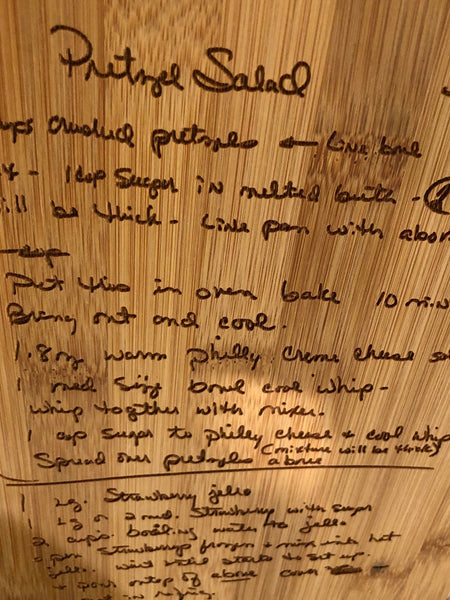 Pretzel Salad
ups crushed pretzels ← Line bowl
- 1 cup sugar in melted butter -
ill be thick - Line pan with abov
cup
Put this in oven bake 10 min
Bring out and cool.
1. 8 oz warm Philly Creme Cheese
1 med size bowl cool whip -
whip together with mixer.
1 cup sugar to philly cheese + cool whip
Spread over pretzels (mixture will be thick)
above
1 Lg. Strawberry jello
1 Lg or 2 med. Strawberry with sugar
2 cups boiling water to jello
pen Strawberrys frozen + mix with hot
jello. wait until starts to set up.
+ pour on top of above cover